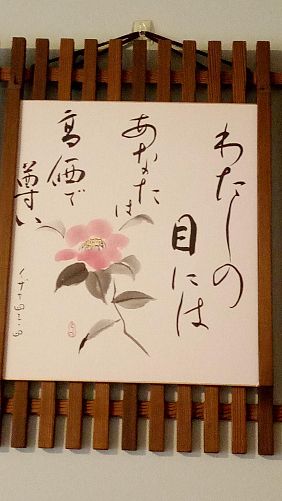 わたしの
目には
あなたは
高価で
尊い
イザヤ四三・四